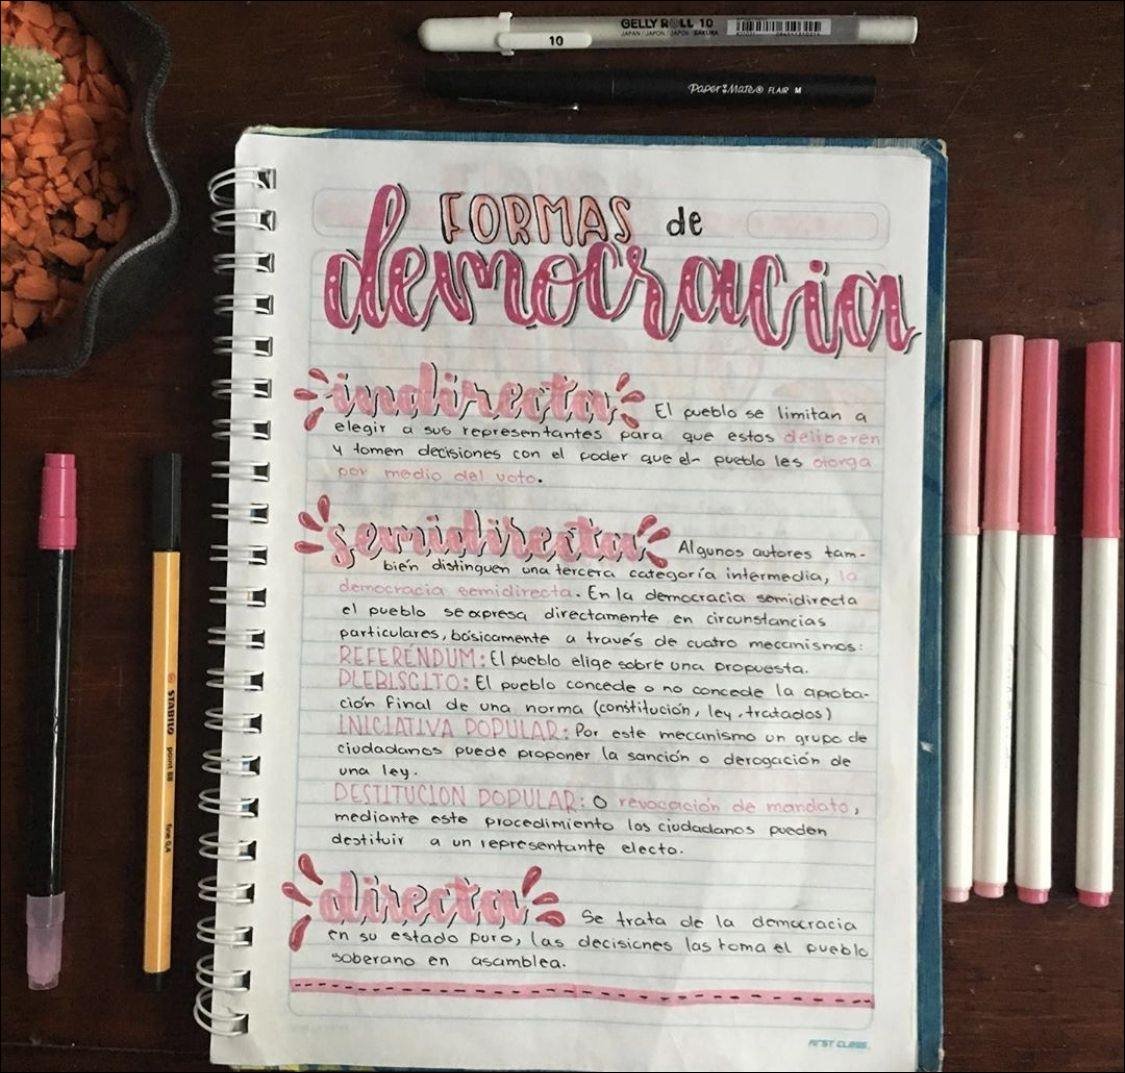 GELLY ROLL 10
JAPAN / JAPON / JAPÓN SAKURA
10
Paper:Mate® FLAIR M
FORMAS de
democracia
indirecta El pueblo se limitan a
elegir a sus representantes para que estos deliberen
y tomen decisiones con el poder que el pueblo les otorga
por medio del voto.
semidirecta Algunos autores tam-
bién distinguen una tercera categoría intermedia, la
democracia semidirecta. En la democracia semidirecta
el pueblo se expresa directamente en circunstancias
particulares, básicamente a través de cuatro mecanismos:
REFERÉNDUM: El pueblo elige sobre una propuesta.
PLEBISCITO: El pueblo concede o no concede la aproba-
ción final de una norma (constitución, ley, tratados)
INICIATIVA POPULAR: Por este mecanismo un grupo de
ciudadanos puede proponer la sanción o derogación de
una ley.
DESTITUCION POPULAR: O revocación de mandato,
mediante este procedimiento los ciudadanos pueden
destituir a un representante electo.
directa Se trata de la democracia
en su estado puro, las decisiones las toma el pueblo
soberano en asamblea.
FIRST CLASS
STABILO point 88 fine 0.4